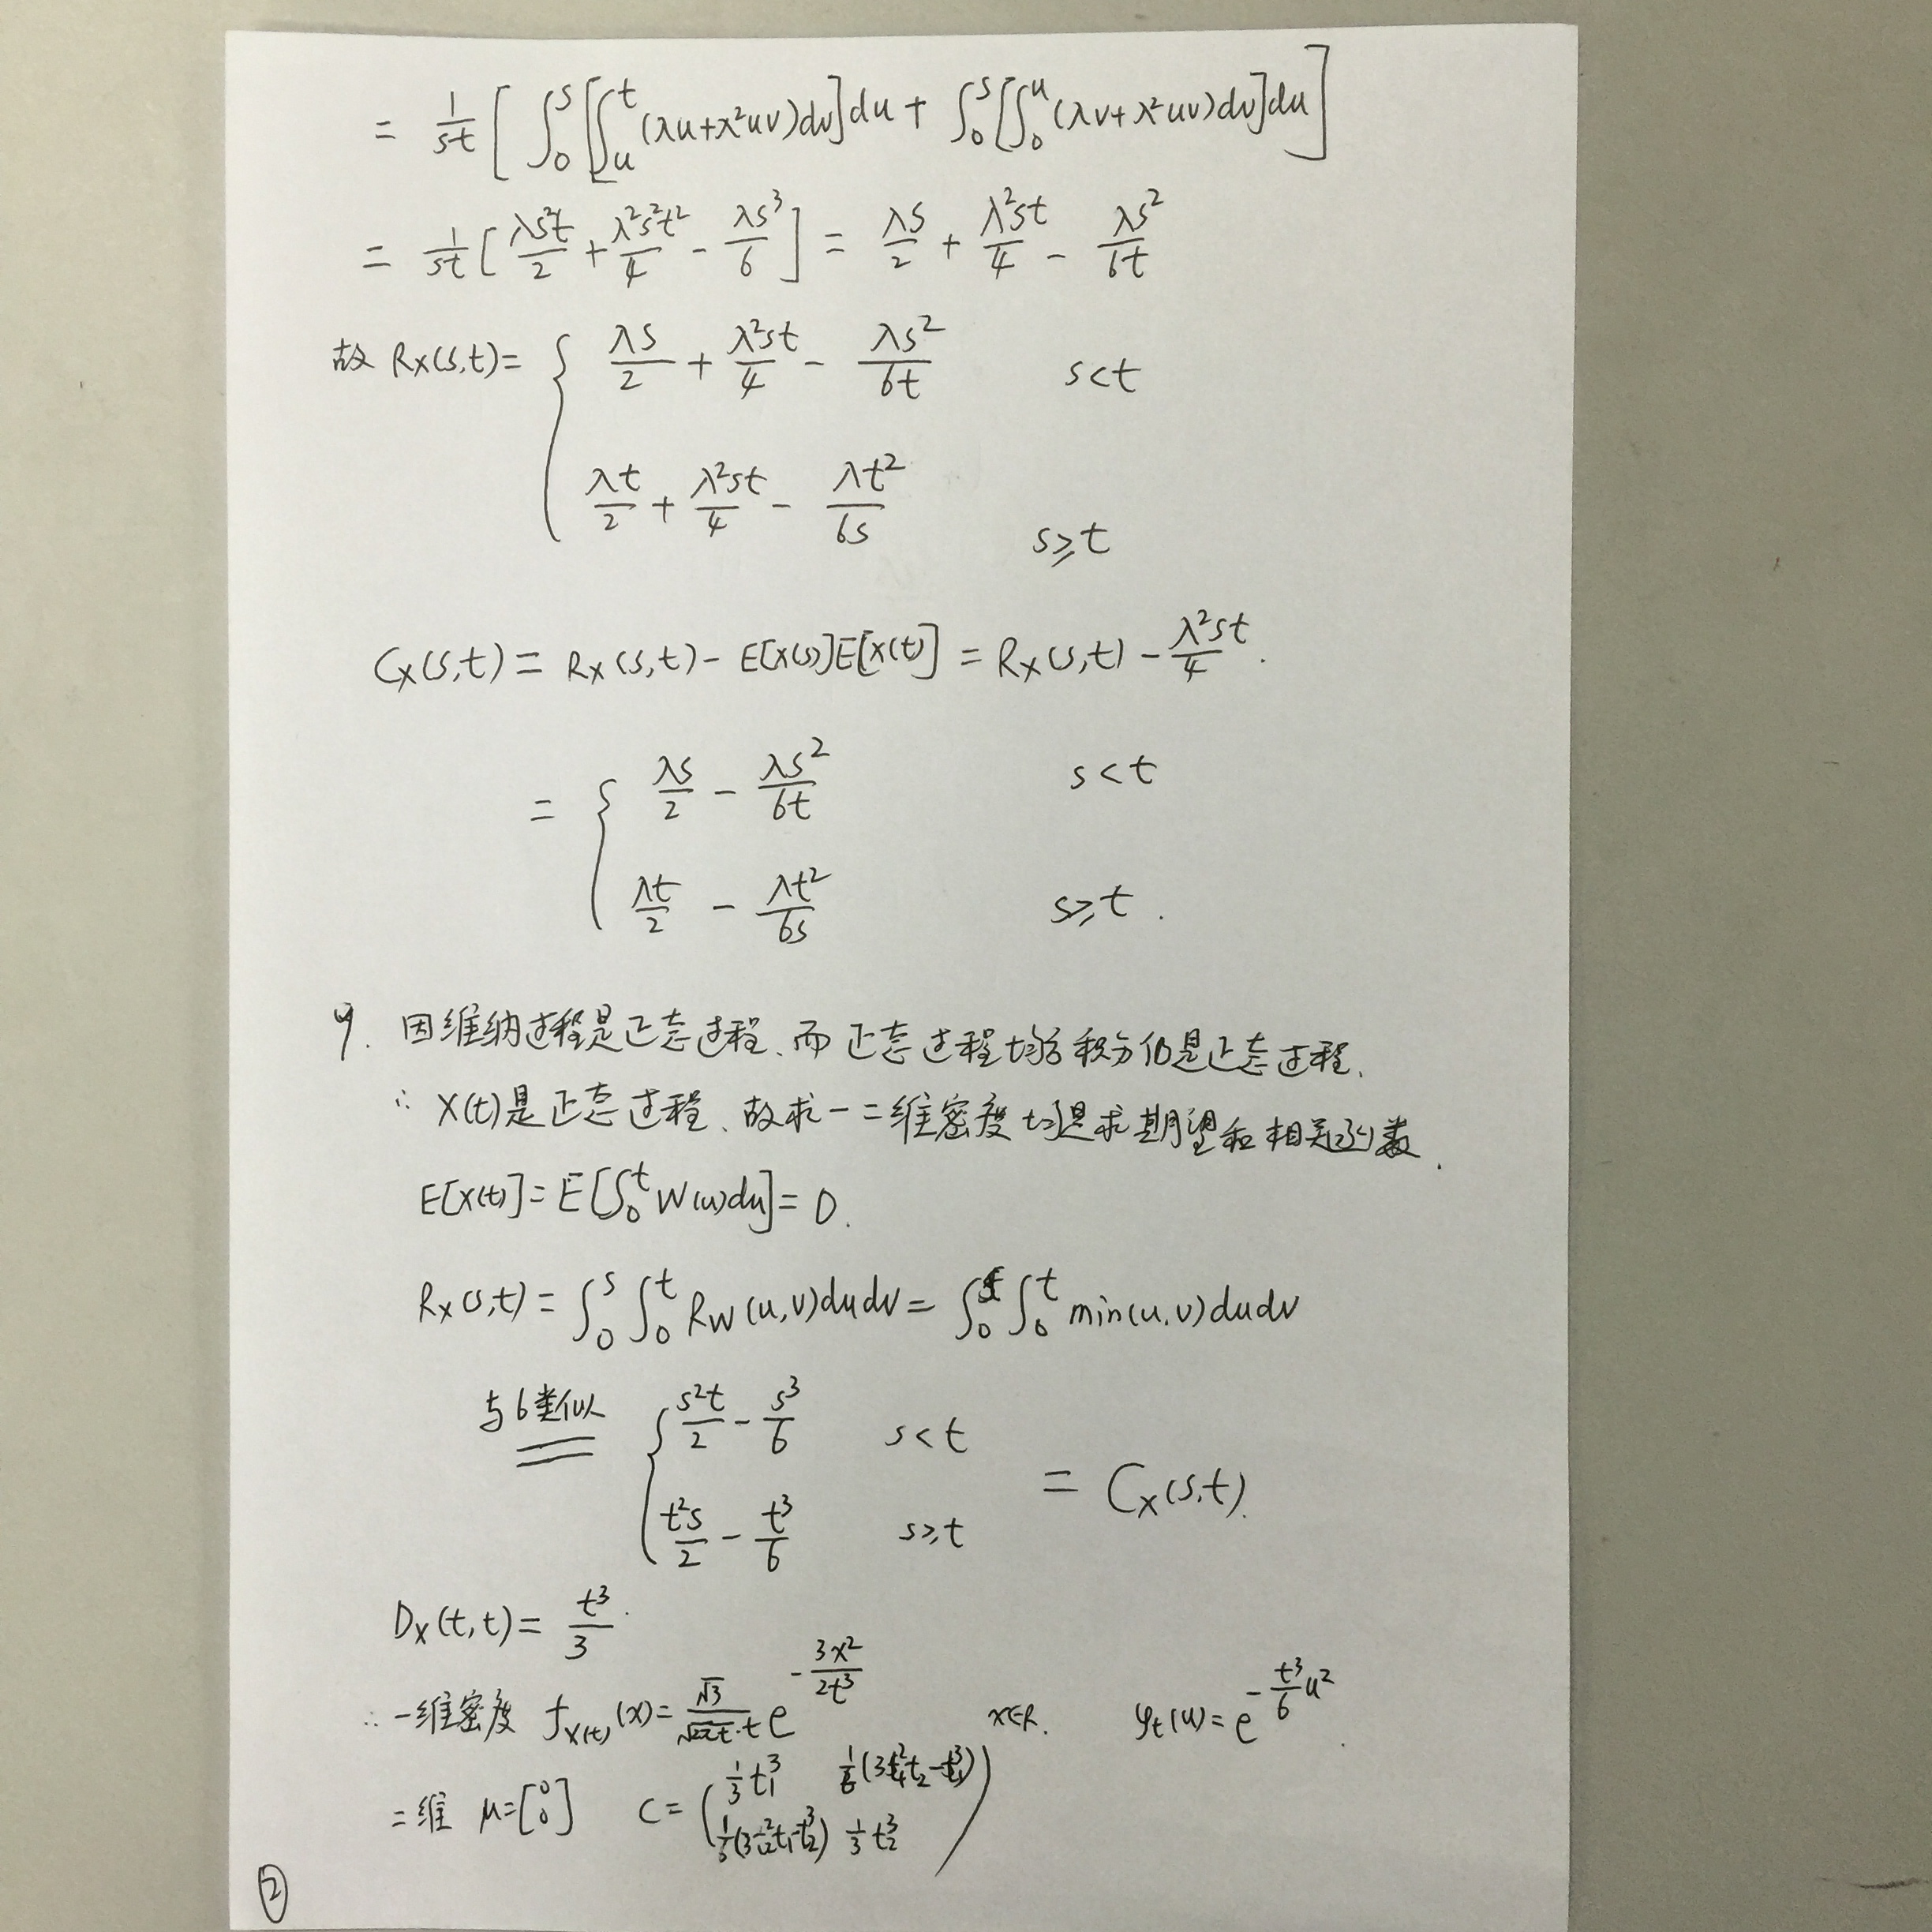 = 1/st [ ∫₀ˢ [∫ᵤᵗ (λu+λ²uv)dv]du + ∫₀ˢ [∫₀ᵘ (λv+λ²uv)dv]du ]
= 1/st [ λs²t/2 + λ²s²t²/4 - λs³/6 ] = λs/2 + λ²st/4 - λs²/6t
故 Rx(s,t) = { λs/2 + λ²st/4 - λs²/6t s<t
λt/2 + λ²st/4 - λt²/6s s≥t
Cx(s,t) = Rx(s,t) - E[X(s)]E[X(t)] = Rx(s,t) - λ²st/4.
= { λs/2 - λs²/6t s<t
λt/2 - λt²/6s s≥t.
9. 因维纳过程是正态过程、而正态过程均方积分仍是正态过程.
∴ X(t)是正态过程、故求一二维密度均是求期望和相关函数.
E[X(t)] = E[∫₀ᵗ W(u)du] = 0.
Rx(s,t) = ∫₀ˢ ∫₀ᵗ Rw(u,v)dudv = ∫₀ˢ ∫₀ᵗ min(u,v)dudv
与6类似 = { s²t/2 - s³/6 s<t
t²s/2 - t³/6 s≥t
= Cx(s,t).
Dx(t,t) = t³/3.
∴ 一维密度 f_X(t)(x) = √3/(√2πt·t) e^(-3x²/2t³) x∈R. φt(u) = e^(-t³/6 u²).
二维 μ=[0 0] C = ( 1/3 t₁³ 1/6(3t₁²t₂-t₁³)
1/6(3t₂²t₁-t₂³) 1/3 t₂³ )
②